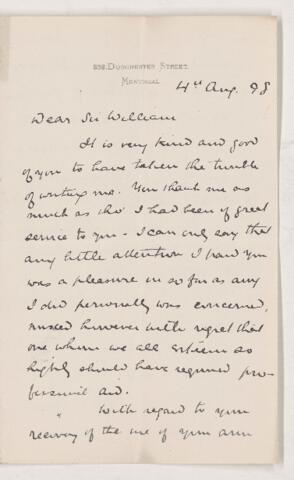 938. Dorchester Street.
Montreal
4th Aug. 98
Dear Sir William
It is very kind and good
of you to have taken the trouble
of writing me. You thank me as
much as tho' I had been of great
service to you - I can only say that
any little attention I paid you
was a pleasure in so far as any
I did personally was concerned,
mixed however with regret that
one whom we all esteem so
highly should have required pro-
fessional aid.
With regard to your
recovery of the use of your arm